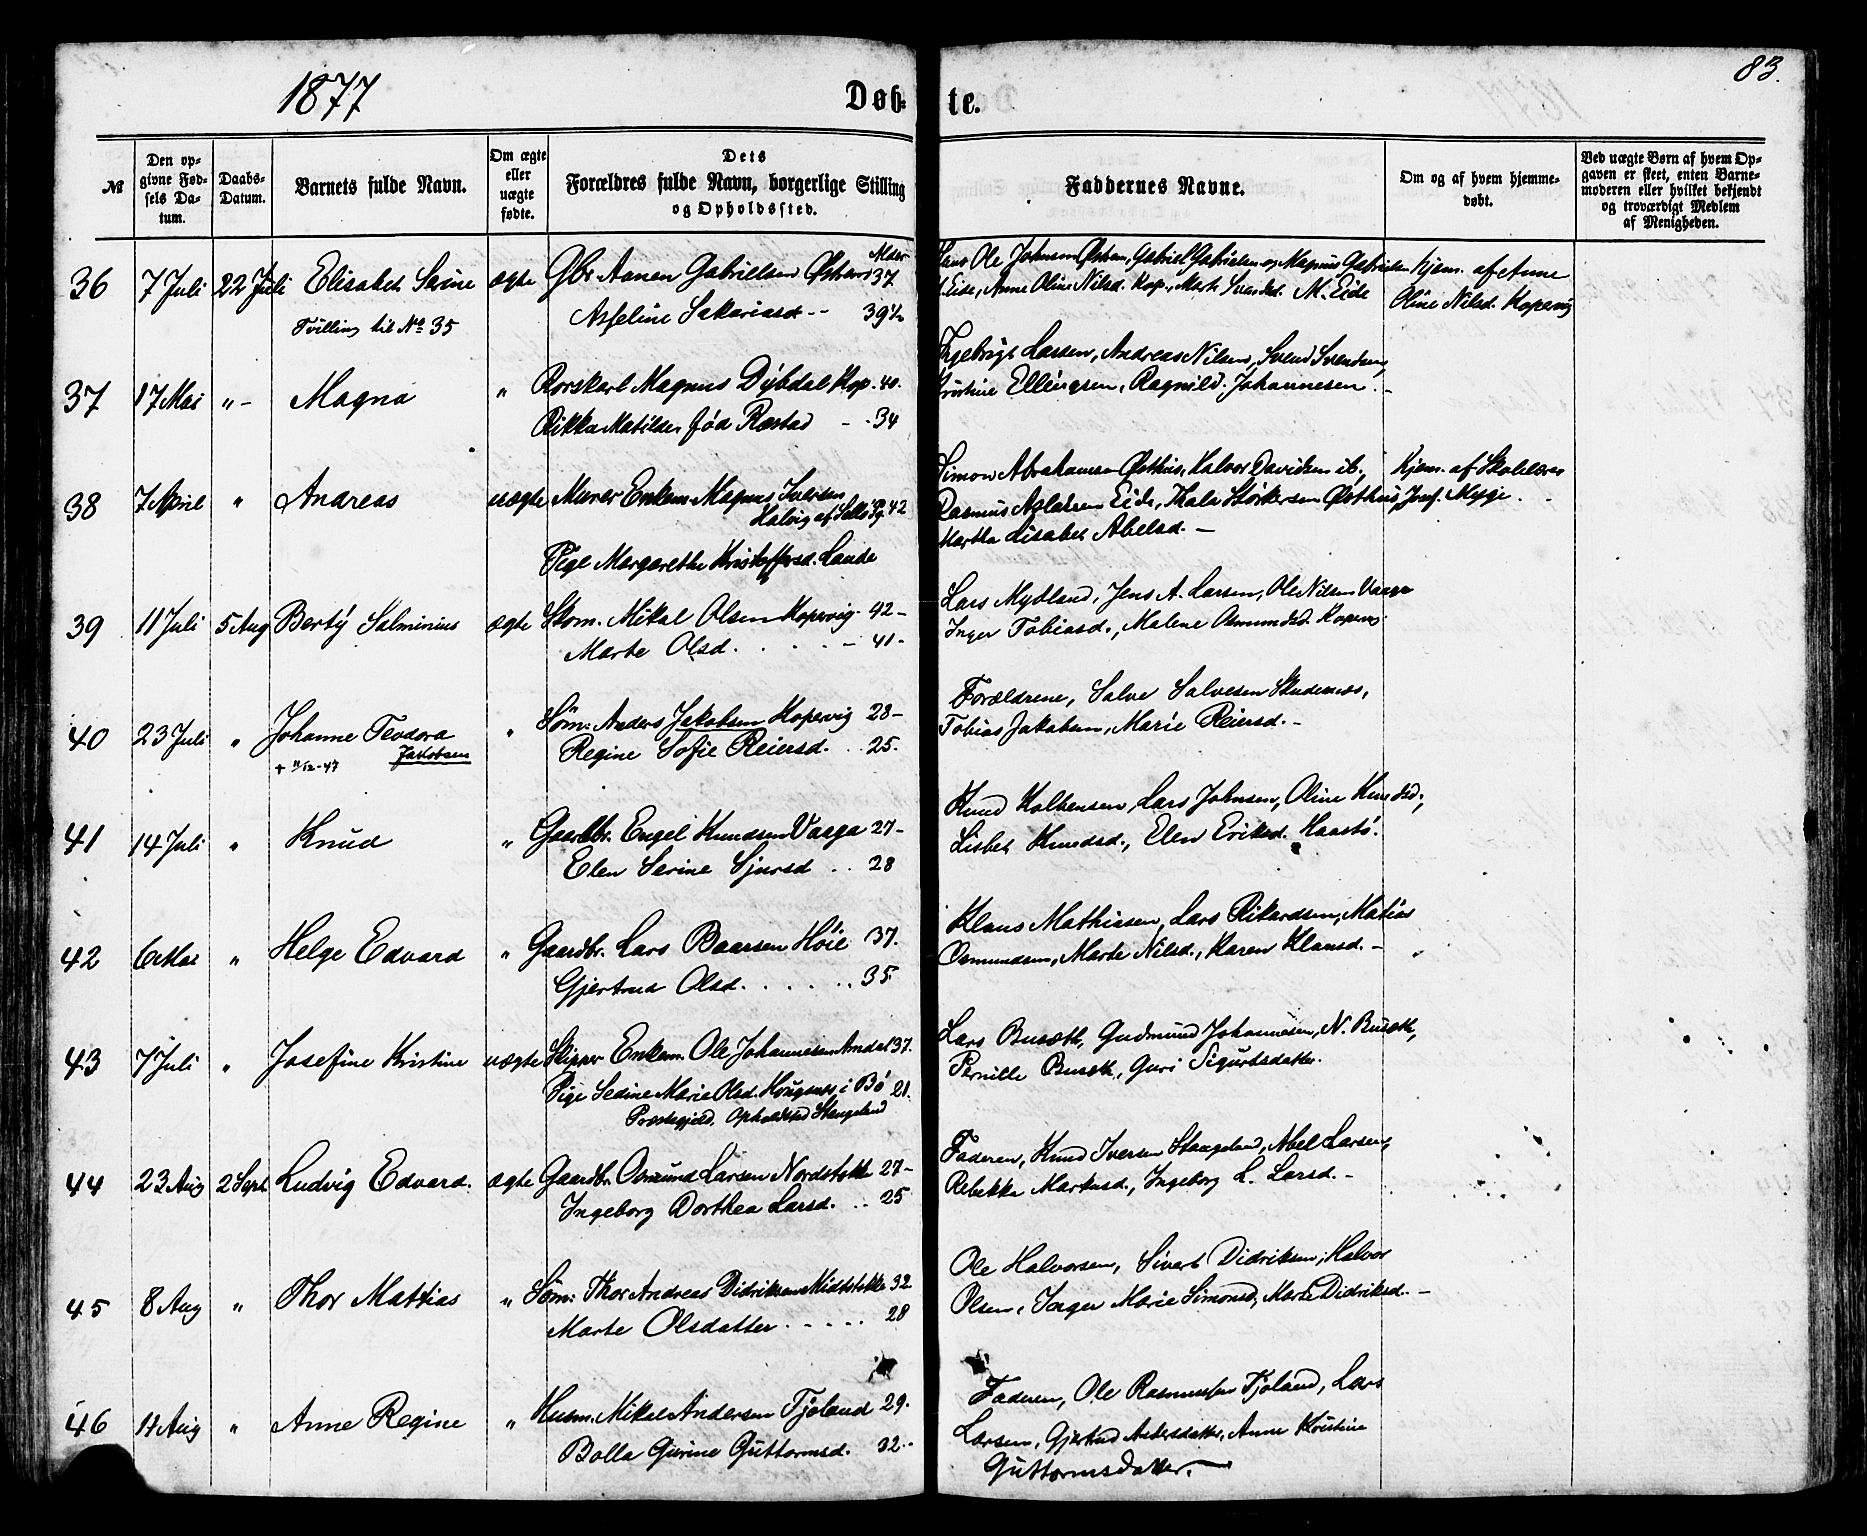 1877
Døb-
te.
83.
№
Den op-
givne Fød-
sels Da-
tum.
Daabs-
Datum.
Barnets fulde Navn.
Om ægte
eller
uægte
fødte.
Dets
Forældres fulde Navn, borgerlige Stilling
og Opholdssted.
Faddernes Navne.
Om og af hvem hjemme-
døbt.
Ved uægte Børn af hvem Op-
gaven er skeet, enten Barne-
moderen eller hvilket bekjendt
og troværdigt Medlem
af Menigheden.
36 7 Juli 22 Juli Elisabet Serine ægte Gbr. Aanen Gabrielsen Østhus 37
Tvilling til No 35
Sakariasd -- 39½
Ole Johnsen Østhus, Gabriel Gabrielsen og Magnus Gabrielsen
Eide, Anne Oline Nilsd. Kop., Marte Svendsd. M. Eide
Hjem. af Anne
Oline Nilsd. Kopervig
37 17 Mai " - Magna " Magnus Dybdal Kop. 40.
Rikka Matilde fød Rastad - - 34
Ingebrigt Larsen, Andreas Nilsen, Svend Svendsen,
Kristine Ellingsen, Ragnild Johannesen. -
38 7 April " Andreas uægte Murer Enkem. Magnus Iversen
Halvig af 42
Pige Margarethe Kristoffersd. Lande
Simon Abrahamsen Østhus, Halvor Davidsen ib.,
Rasmus Aslaksen Eide, Thale Størkersen Østhus,
Martha Lisabet Abelsd. -
Hjem. af Skolelærer
Josef Myge. -
39 11 Juli 5 Aug Berty Salminius ægte Skom. Mikal Olsen Kopervig. 42 -
Marte Olsd. . . . . - 41 -
Lars Mydland, Jens A. Larsen, Ole Nilsen Vaage
Inger Tobiasd., Malene Osmundsd. Koperv.
40 23 Juli " Johanne Teodora " Søm. Anders Jakobsen Kopervig 28 -
Jakobsen
† 11/12-47
Regine Sofie Reiersd. . . 25.
Forældrene, Salve Salvesen Skudenes,
Tobias Jakobsen, Marie Reiersd. -
41 14 Juli " Knud " Gaardbr. Engel Knudsen Vaaga 27 -
Elen Serine Sjursd . . 28
Knud Kolbensen, Lars Johnsen, Oline Knudsd.,
Lisbet Knudsd., Elen Eriksd. Haastø.
42 6 Mai " Helge Edvard " Gaardbr. Lars Baarsen Høie 37.
Gjertrud Olsd. . . . . . . 35.
Klaus Mathiasen, Lars Rikardsen, Matias
Osmundsen, Marte Nilsd., Karen Klausd. -
"
43 7 Juli " Josefine Kristine uægte Skipper Enkem. Ole Johannesen Andal 37.
Pige Sedine Marie Olsd. Haugnes i Bø 21.
Præstegjeld, Opholdsted Stangeland
Lars Busæth, Gudmund Johannesen, N. Busæth,
Pernille Busæth, Guri Sigurdsdatter.
44 23 Aug 2 Sept. Ludvig Edvard. ægte Gaardbr. Osmund Larsen Nordstokke 27 -
Ingeborg Dorthea Larsd. . . 25
Faderen, Knud Iversen Stangeland, Abel Larsen,
Rebekka Markusd., Ingeborg L. Larsd. -
45 8 Aug " Thor Mattias " Søm. Thor Andreas Didriksen Midtstokke 32
Marte Olsdatter . . . . . 28
Ole Halvorsen, Sivert Didriksen, Halvor
Olsen, Inger Marie Simonsd., Marte Didriksd. -
46 11 Aug " Anne Regine " Husm. Mikal Andersen Tjøland 29.
Bolla Gurine Guttormsd. 32 --
Faderen, Ole Rasmussen Tjøland, Lars
Larsen, Gjertrud Andersdatter, Anne Kristine
Guttormsdatter. -